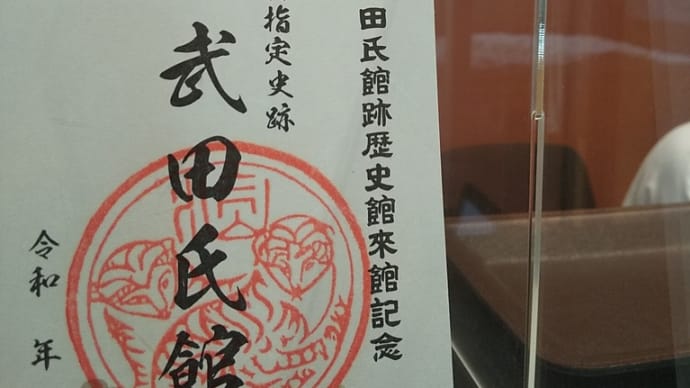 田氏館跡歴史館來館記念
指定史跡
武田氏館
令和 年